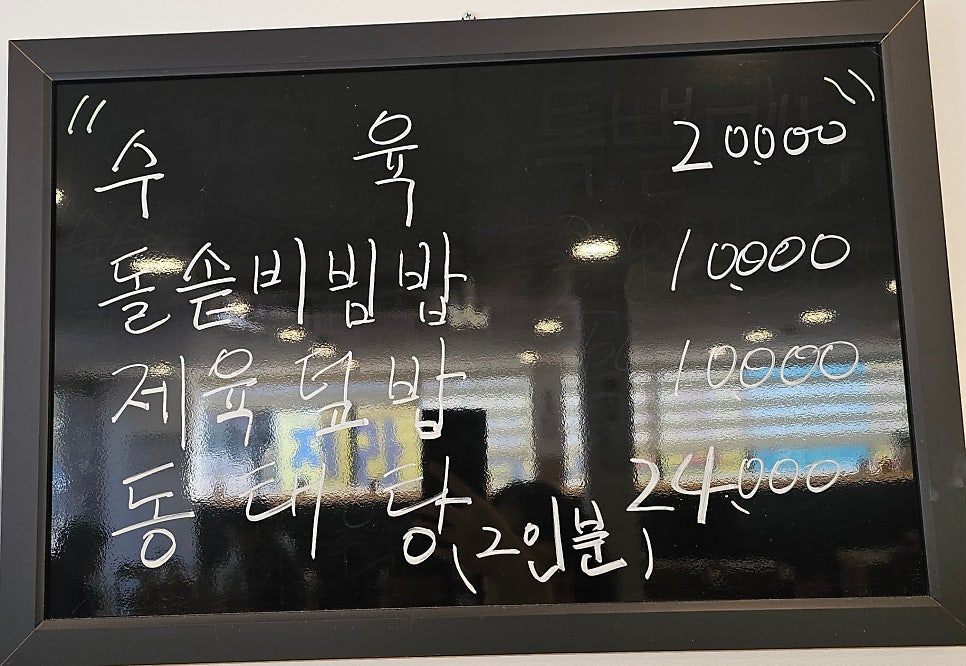 " 수 육 20,000 "
돌솥비빔밥 10,000
제육덮밥 10,000
동태탕(2인분) 24,000